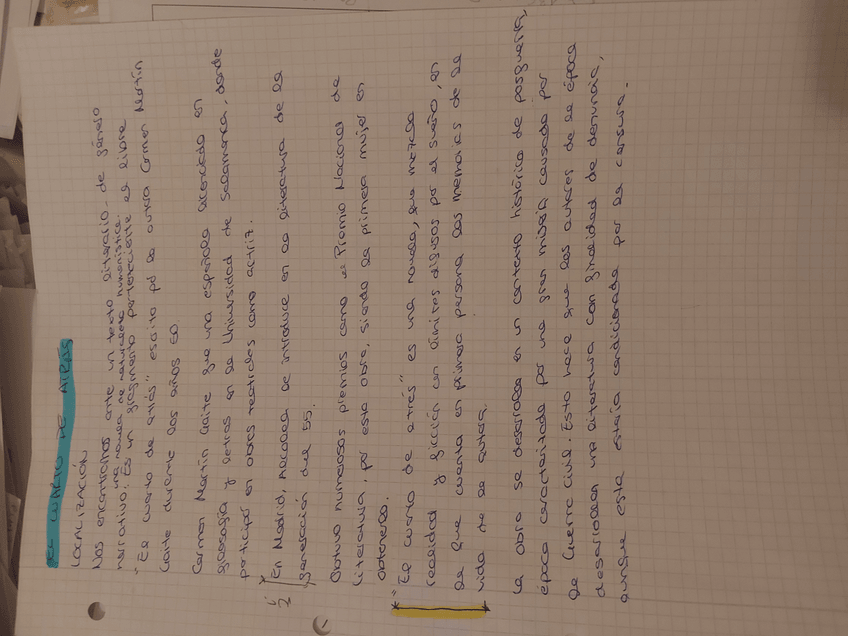 EL CUARTO DE ATRÁS
LOCALIZACIÓN
Nos encontramos ante un texto literario de género
una novela de naturaleza humanística.
narrativo: Es un fragmento perteneciente al libro
"El cuarto de atrás" escrito por la autora Carmen Martín
Gaite durante los años 50.
Carmen Martín Gaite fue una española licenciada en
filosofía y letras en la Universidad de Salamanca, donde
participó en obras teatrales como actriz.
En Madrid, Aldecoa le introduce en la literatura de la
generación del 55.
¿?
Obtuvo numerosos premios como el Premio Nacional de
Literatura, por esta obra, siendo la primera mujer en
obtenerlo.
"El cuarto de atrás" es una novela, que mezcla
realidad y ficción con límites difusos por el sueño, en
la que cuenta en primera persona las memorias de la
vida de la autora.
La obra se desarrolla en un contexto histórico de posguerra,
época caracterizada por una gran miseria causada por
la Guerra Civil. Esto hace que los autores de la época
desarrollen una literatura con finalidad de denuncia,
aunque esta estaría condicionada por la censura.